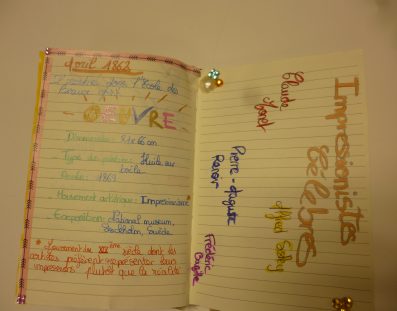 Avril 1862
l'École des
Beaux Arts
OEUVRE
Dimension : 81x66 cm
Type de peinture : Huile sur
toile
Année : 1869
Mouvement artistique : Impressionnisme
Exposition : National museum,
Stockholm, Suède
Mouvement du XIXème siècle dont les
artistes préfèrent représenter leurs
impressions plutôt que la réalité
Impressionistes
Célèbres
Claude Monet
Alfred Sisley
Pierre-Auguste
Renoir
Frédéric
Bazille